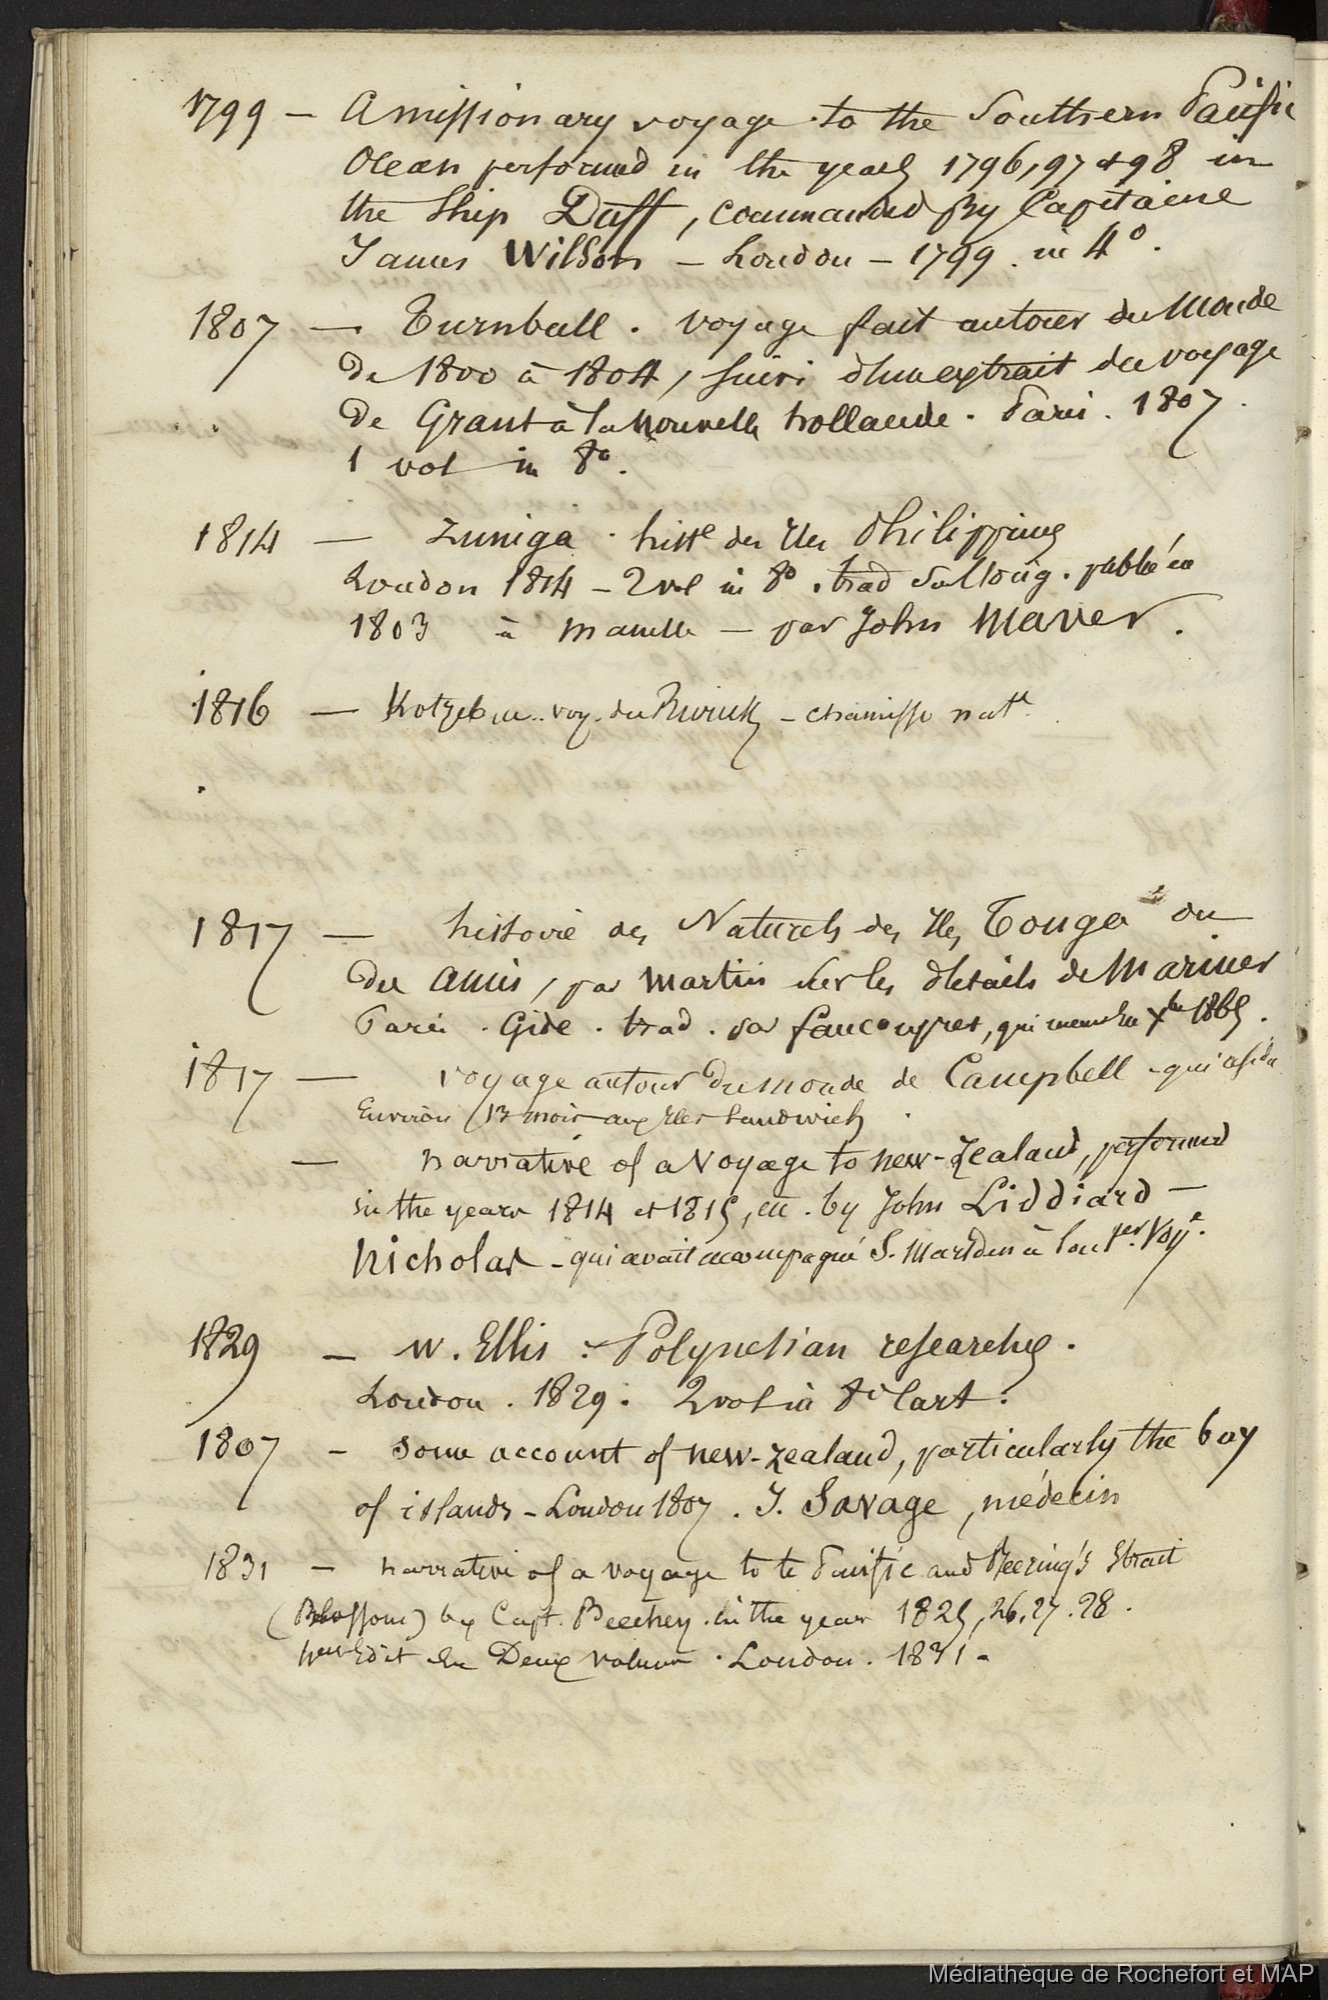 1799 — A missionary voyage to the Southern Pacific
Ocean performed in the years 1796, 97 & 98 in
the Ship Duff, commanded By Capitaine
James Wilson — London — 1799. in 4°.
1807 — Turnbull. voyage fait autour du Monde
De 1800 à 1804, suivi d'un extrait du voyage
De Grant à la nouvelle hollande. Paris. 1807.
1 vol in 8°.
1814 — Zuniga. histre des Iles Philippines
London 1814 — 2 vol in 8°. trad publiée en
1803 à manille — par John Maver.
1816 — Kotzebue.. voy. du Rurick — chamisso natte.
1817 — histoire des Naturels des Iles Tonga ou
Des amis, par Martin sur les détails de Mariner
Paris. Gide. trad. par fauconpret, qui meurt en Xbre 1865.
1817 — voyage autour Du monde de Campbell - qui
Environ 13 mois aux Iles Sandwich.
— narrative of a voyage to new-Zealand, performed
in the years 1814 et 1815, etc. by John Liddiard —
Nicholas - qui avait accompagné S. Marsden à son 1er. Voye.
1829 — W. Ellis. Polynesian researches.
London. 1829. 2 vol in 8° cart.
1807 — Some account of new-zealand, particularly the bay
of islands - London 1807. J. Savage, médecin
1831 — narrative of a voyage to te Pacific and Beering's Strait
(Blossom) by Capt. Beechey. in the year 1825, 26, 27. 28.
Edit en Deux volume. London. 1831.
Médiathèque de Rochefort et MAP